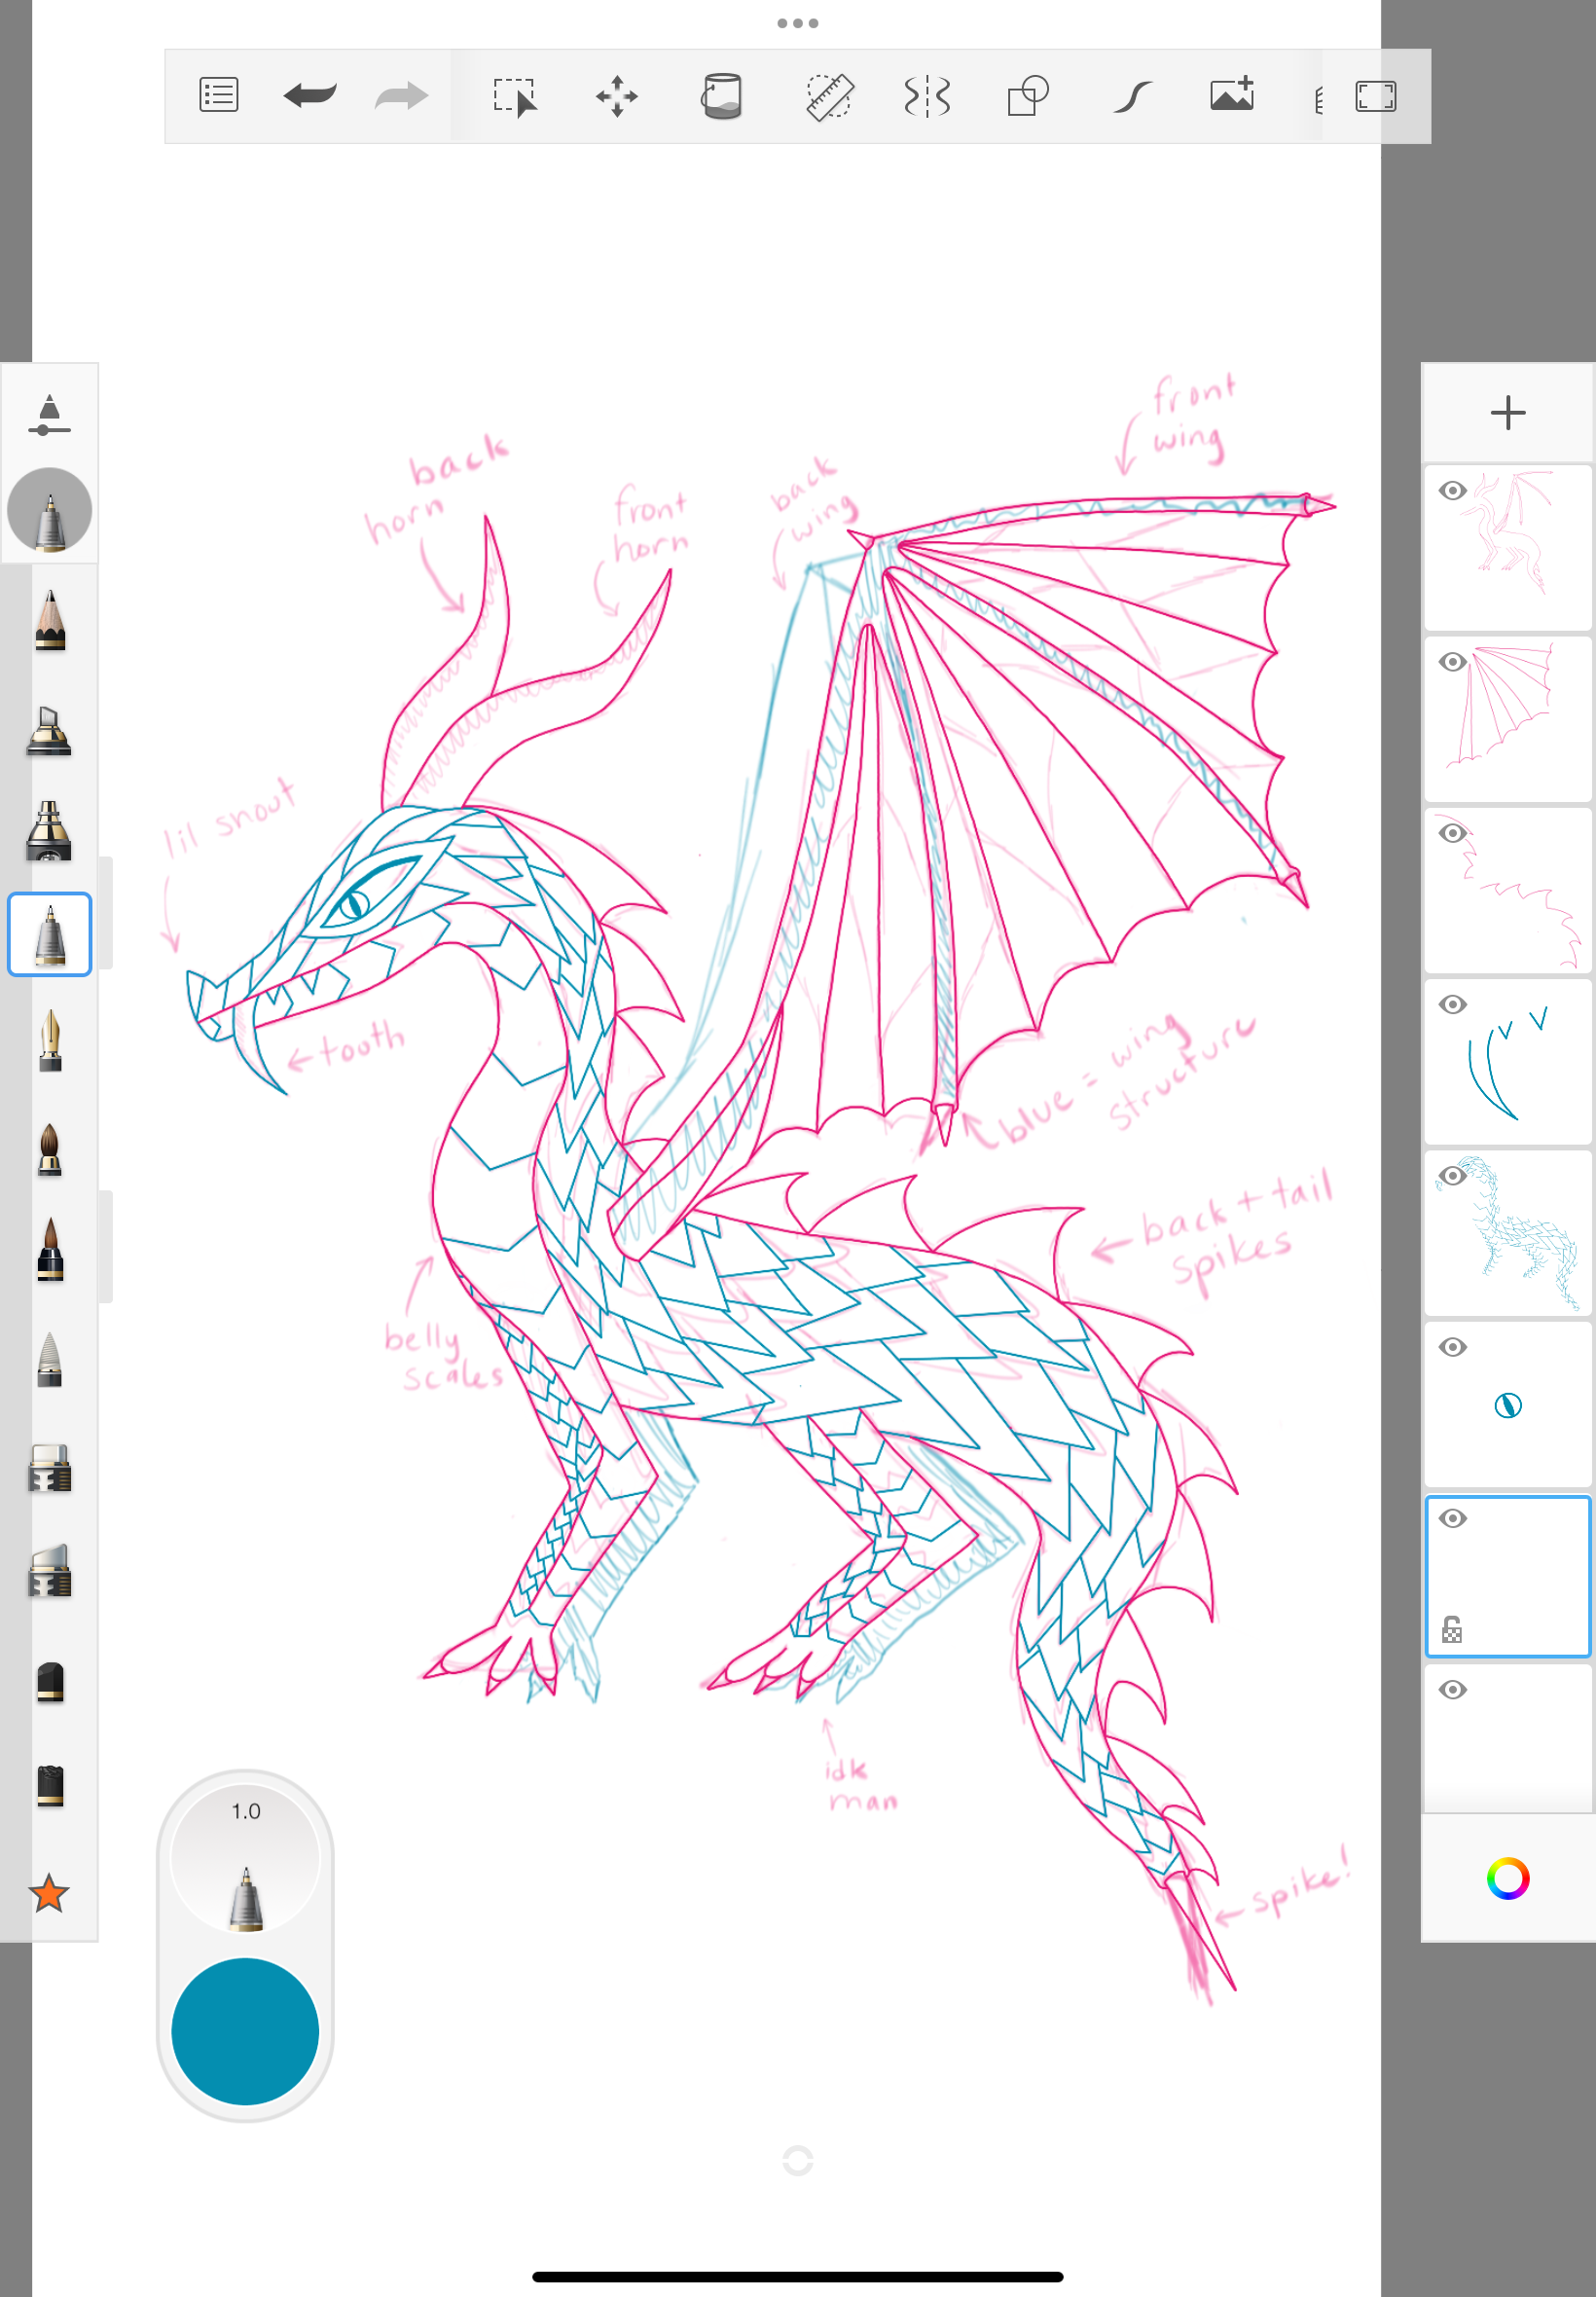 front
wing
back
horn
front
horn
back
wing
lil snout
← tooth
blue = wing
structure
← back + tail
spikes
belly
scales
idk
man
← spike!
1.0